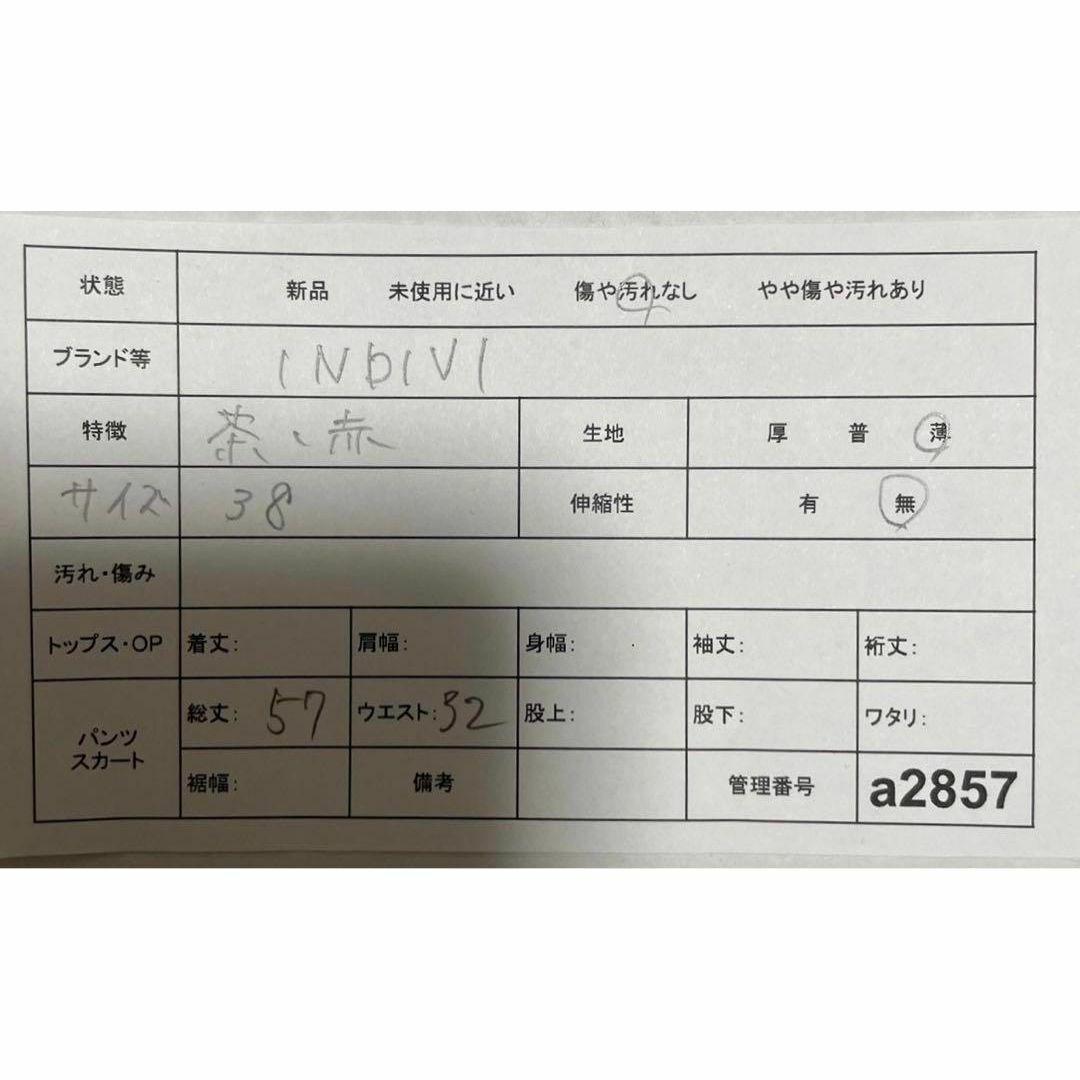 状態 新品 未使用に近い 傷や汚れなし やや傷や汚れあり
ブランド等 INDIVI
特徴 茶、赤 生地 厚 普 薄
サイズ 38 伸縮性 有 無
汚れ・傷み
トップス・OP 着丈: 肩幅: 身幅: 袖丈: 裄丈:
パンツ スカート 総丈: 57 ウエスト: 32 股上: 股下: ワタリ:
裾幅: 備考 管理番号 a2857